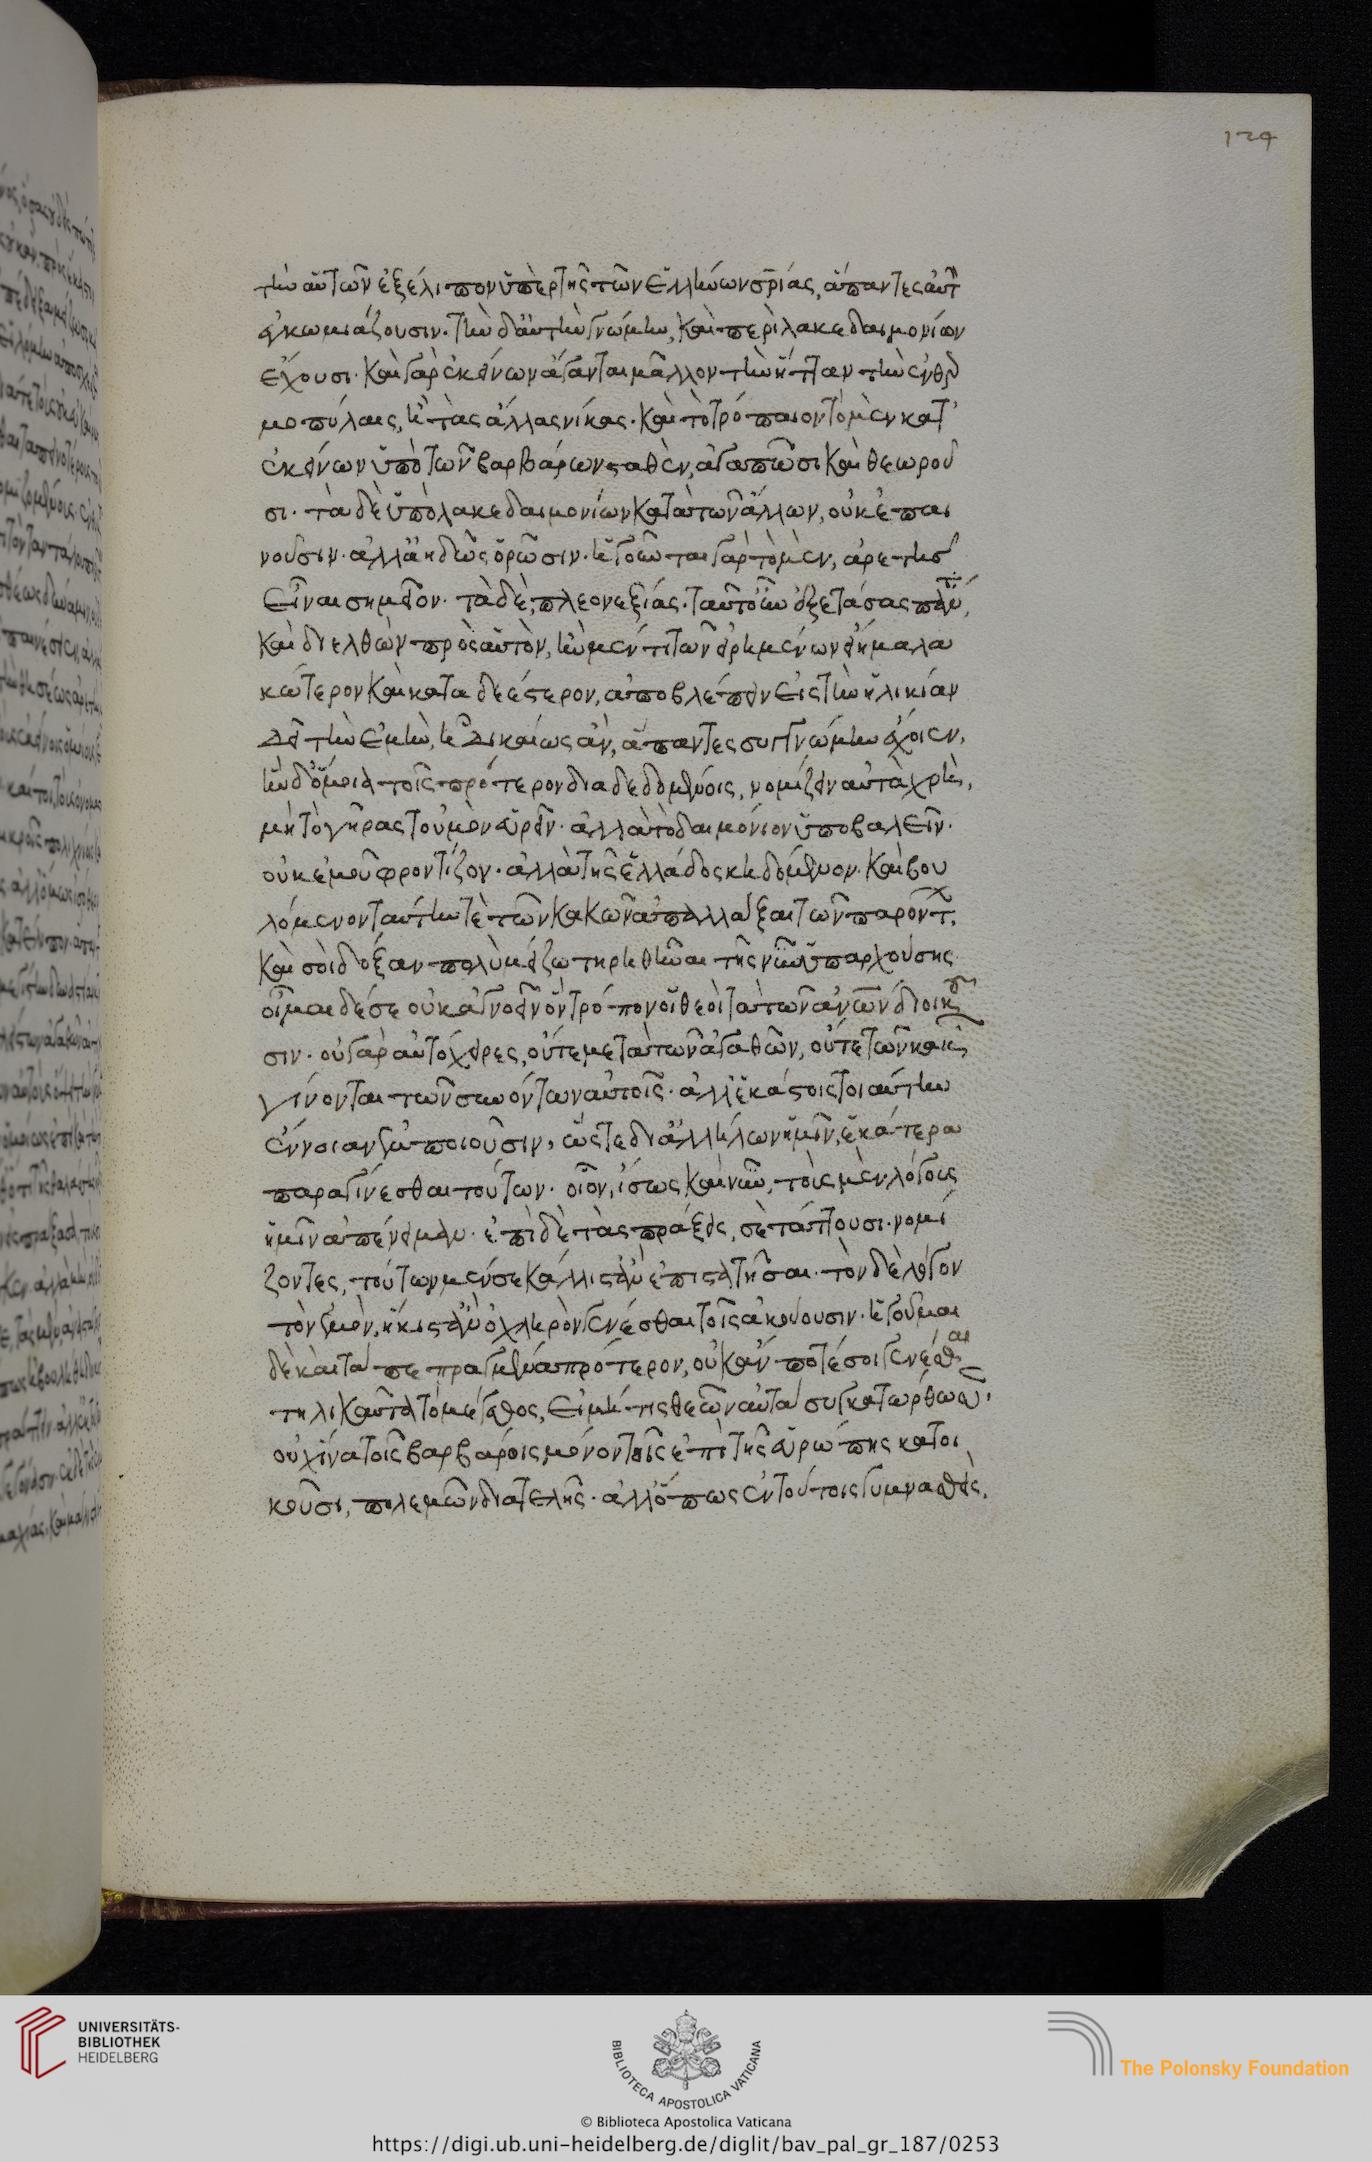 124
τὴν αὑτῶν ἐξέλιπον ὑπὲρ τῆς τῶν ἑλλήνων σρίας, ἅπαντες αὐτ
ἐγκωμιάζουσιν. τὴν δ' αὐτὴν γνώμην, καὶ περὶ λακεδαιμονίων
ἔχουσι. καὶ γὰρ ἐκείνων ἄγανται μᾶλλον τὴν ἧτταν τὴν ἐν θερ
μοπύλαις, ἢ τὰς ἄλλας νίκας. καὶ τὸ τρόπαιον τὸ μὲν κατ'
ἐκείνων ὑπὸ τῶν βαρβάρων σταθὲν, ἀγαπῶσι καὶ θεωροῦ
σι. τὰ δὲ ὑπὸ λακεδαιμονίων κατὰ τῶν ἄλλων, οὐκ ἐπαι
νοῦσιν. ἀλλ' ἀηδῶς ὁρῶσιν. ἡγοῦνται γὰρ τὸ μὲν, ἀρετῆς
εἶναι σημεῖον. τὰ δὲ, πλεονεξίας. ταῦτ' οὖν ἐξετάσας πάντα,
καὶ διελθὼν πρὸς αὑτὸν, ἢν μέν τι τῶν εἰρημένων εἴη μαλα
κώτερον καὶ καταδεέστερον, ἀποβλέπειν εἰς τὴν ἡλικίαν
δεῖ τὴν ἐμὴν, ᾗ δικαίως ἂν, ἅπαντες συγγνώμην ἔχοιεν,
ἢν δ' ὅμοια τοῖς πρότερον διαδεδομένοις, νομίζειν αὐτὰ χρὴ,
μὴ τὸ γῆρας τοὐμὸν εὑρεῖν. ἀλλὰ τὸ δαιμόνιον ὑποβαλεῖν.
οὐκ ἐμοῦ φροντίζον. ἀλλὰ τῆς ἑλλάδος κηδόμενον. καὶ βου
λόμενον ταύτην τὲ τῶν κακῶν ἀπαλλάξαι τῶν παρόντ.
καὶ σοὶ δόξαν πολὺ μείζω περιθεῖναι τῆς νῦν ὑπαρχούσης.
οἶμαι δέ σε οὐκ ἀγνοεῖν ὃν τρόπον οἱ θεοὶ τὰ τῶν ἀνων διοικοῦ
σιν. οὐ γὰρ αὐτόχειρες, οὔτε μετὰ τῶν ἀγαθῶν, οὔτε τῶν κακῶν
γίνονται τῶν συμβαινόντων αὐτοῖς. ἀλλ' ἑκάστοις τοιαύτην
ἔννοιαν ἐμποιοῦσιν, ὥστε δι' ἀλλήλων ἡμῖν, ἑκάτερα
παραγίνεσθαι τούτων. οἷον, ἴσως καὶ νῦν, τοὺς μὲν λόγους
ἡμῖν ἀπένειμαν. ἐπὶ δὲ τὰς πράξεις, σὲ τάττουσι. νομί
ζοντες, τούτων μέν σε κάλλιστ' ἂν ἐπιστατῆσαι. τὸν δὲ λόγον
τὸν ἐμὸν, ἥκιστ' ἂν ὀχληρὸν γενέσθαι τοῖς ἀκούουσιν. ἡγοῦμαι
δὲ καὶ τά πεπραγμένα πρότερον, οὐκ ἄν ποτέ σοι γενέσθαι
τηλικαῦτα τὸ μέγεθος, εἰ μή τις θεῶν αὐτὰ συγκατώρθωσεν,
οὐχ ἵνα τοῖς βαρβάροις μόνον τοῖς ἐπὶ τῆς εὐρώπης κατοι
κοῦσι, πολεμῶν διατελῇς. ἀλλ' ὅπως ἐν τούτοις γυμνασθεὶς,
UNIVERSITÄTS-
BIBLIOTHEK
HEIDELBERG
BIBLIOTECA APOSTOLICA VATICANA
The Polonsky Foundation
© Biblioteca Apostolica Vaticana
https://digi.ub.uni-heidelberg.de/diglit/bav_pal_gr_187/0253